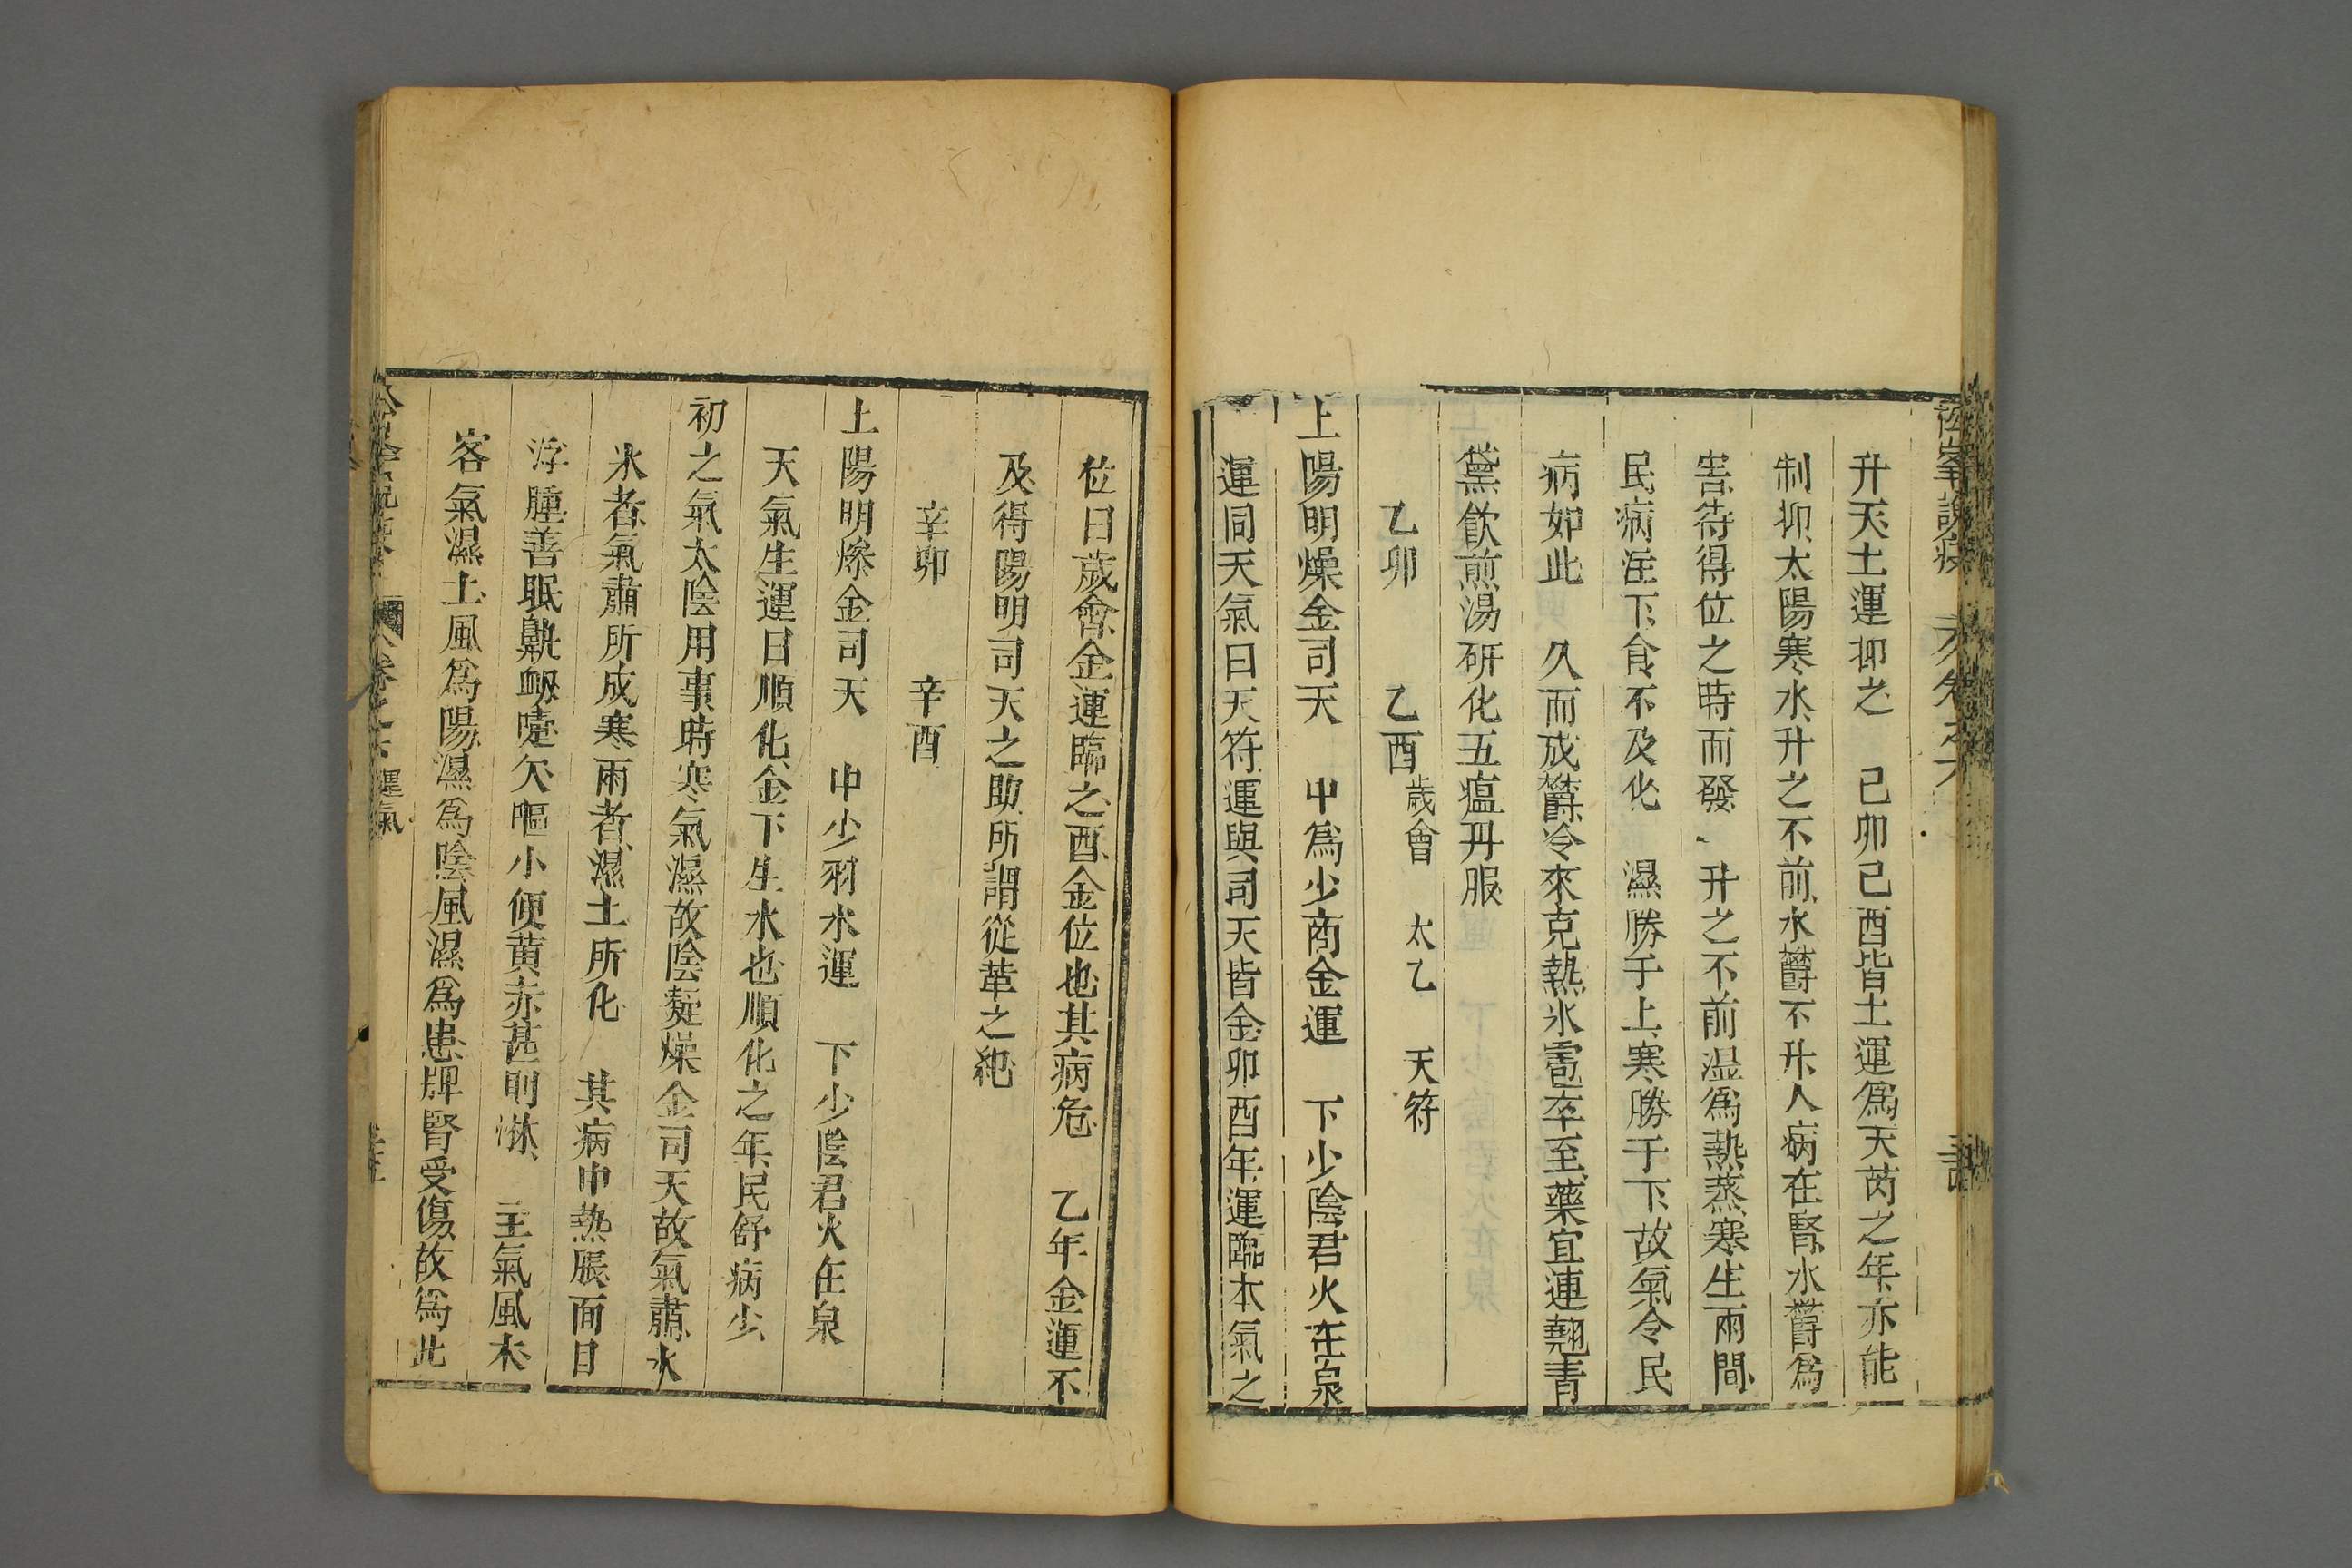 升天土運抑之　己卯己酉皆土運爲天芮之年亦能
制抑太陽寒水升之不前水欝不升人病在腎水欝爲
害待得位之時而發、升之不前温爲熱蒸寒生兩間
民病注下食不及化　濕勝于上寒勝于下故氣令民
病如此　久而成欝冷來克熱氷雹卒至藥宜連翹青
黛飮煎湯研化五瘟丹服
乙卯　乙酉歲會　太乙　天符
上陽明燥金司天　中爲少商金運　下少陰君火在泉
運同天氣曰天符運與司天皆金卯酉年運臨本氣之
位曰歲會金運臨之酉金位也其病危　乙年金運不
及得陽明司天之助所謂從革之紀
辛卯　辛酉
上陽明燥金司天　中少羽水運　下少陰君火在泉
天氣生運曰順化金下生水也順化之年民舒病少
初之氣太陰用事時寒氣濕故陰凝燥金司天故氣肅水
氷者氣肅所成寒雨者濕土所化　其病中熱脹面目
浮腫善眠鼽衂嚏欠嘔小便黄赤甚則淋　主氣風木
客氣濕土風爲陽濕爲陰風濕爲患脾腎受傷故爲此
卷之六　運氣